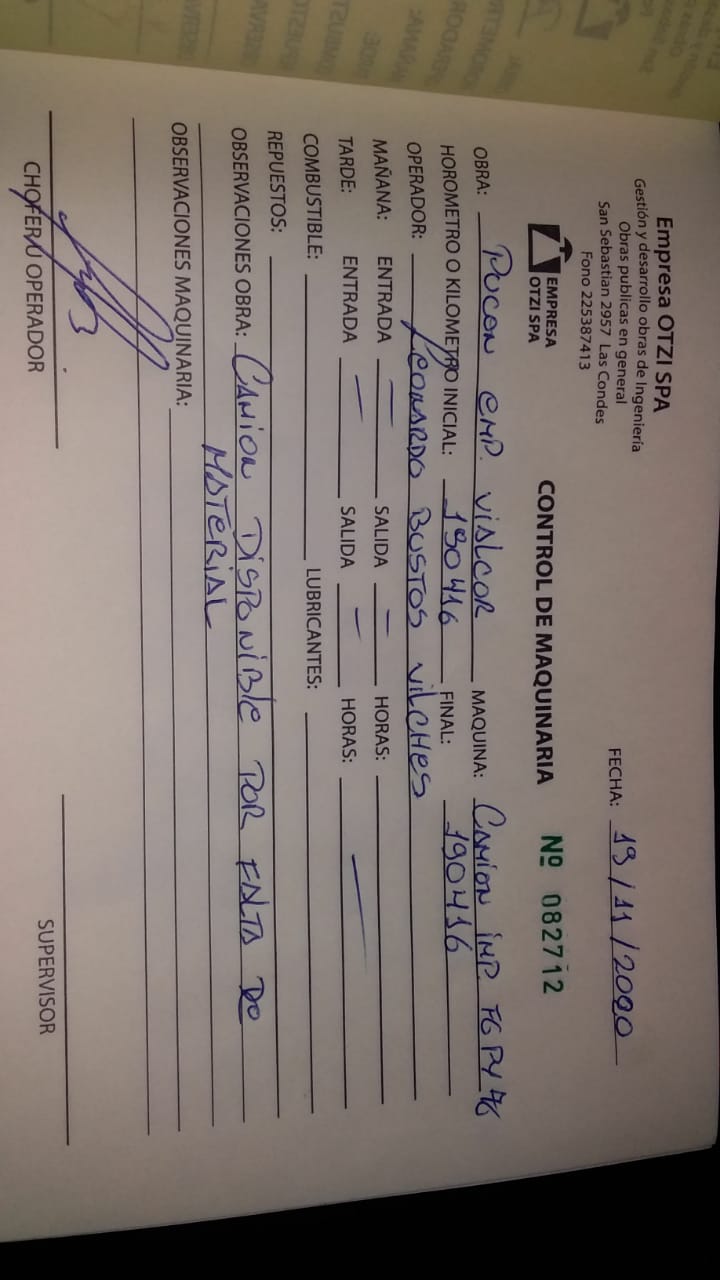 Empresa OTZI SPA
Gestión y desarrollo obras de Ingeniería
Obras publicas en general
San Sebastian 2957 Las Condes
Fono 225387413
FECHA: 19/11/2020
EMPRESA
OTZI SPA
CONTROL DE MAQUINARIA Nº 082712
OBRA: PUCON EMP. VIALCOR MAQUINA: CAMION IMP. FGPY 76
HOROMETRO O KILOMETRO INICIAL: 190416 FINAL: 190416
OPERADOR: LEONARDO BUSTOS VILCHES
MAÑANA: ENTRADA — SALIDA — HORAS:
TARDE: ENTRADA — SALIDA — HORAS: —
COMBUSTIBLE: LUBRICANTES:
REPUESTOS:
OBSERVACIONES OBRA: CAMION DISPONIBLE POR FALTA DE
MATERIAL
OBSERVACIONES MAQUINARIA:
CHOFER U OPERADOR SUPERVISOR